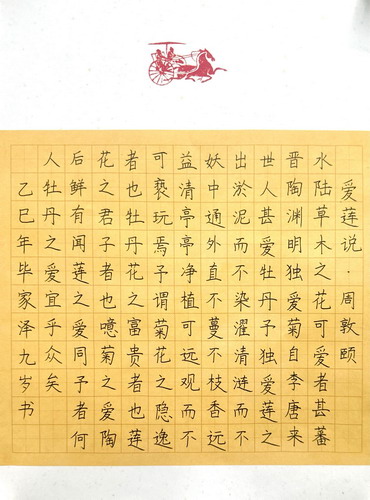 爱莲说·周敦颐
水陆草木之花可爱者甚蕃
晋陶渊明独爱菊自李唐来
世人甚爱牡丹予独爱莲之
出淤泥而不染濯清涟而不
妖中通外直不蔓不枝香远
益清亭亭净植可远观而不
可亵玩焉予谓菊花之隐逸
者也牡丹花之富贵者也莲
花之君子者也噫菊之爱陶
后鲜有闻莲之爱同予者何
人牡丹之爱宜乎众矣
乙巳年毕家泽九岁书